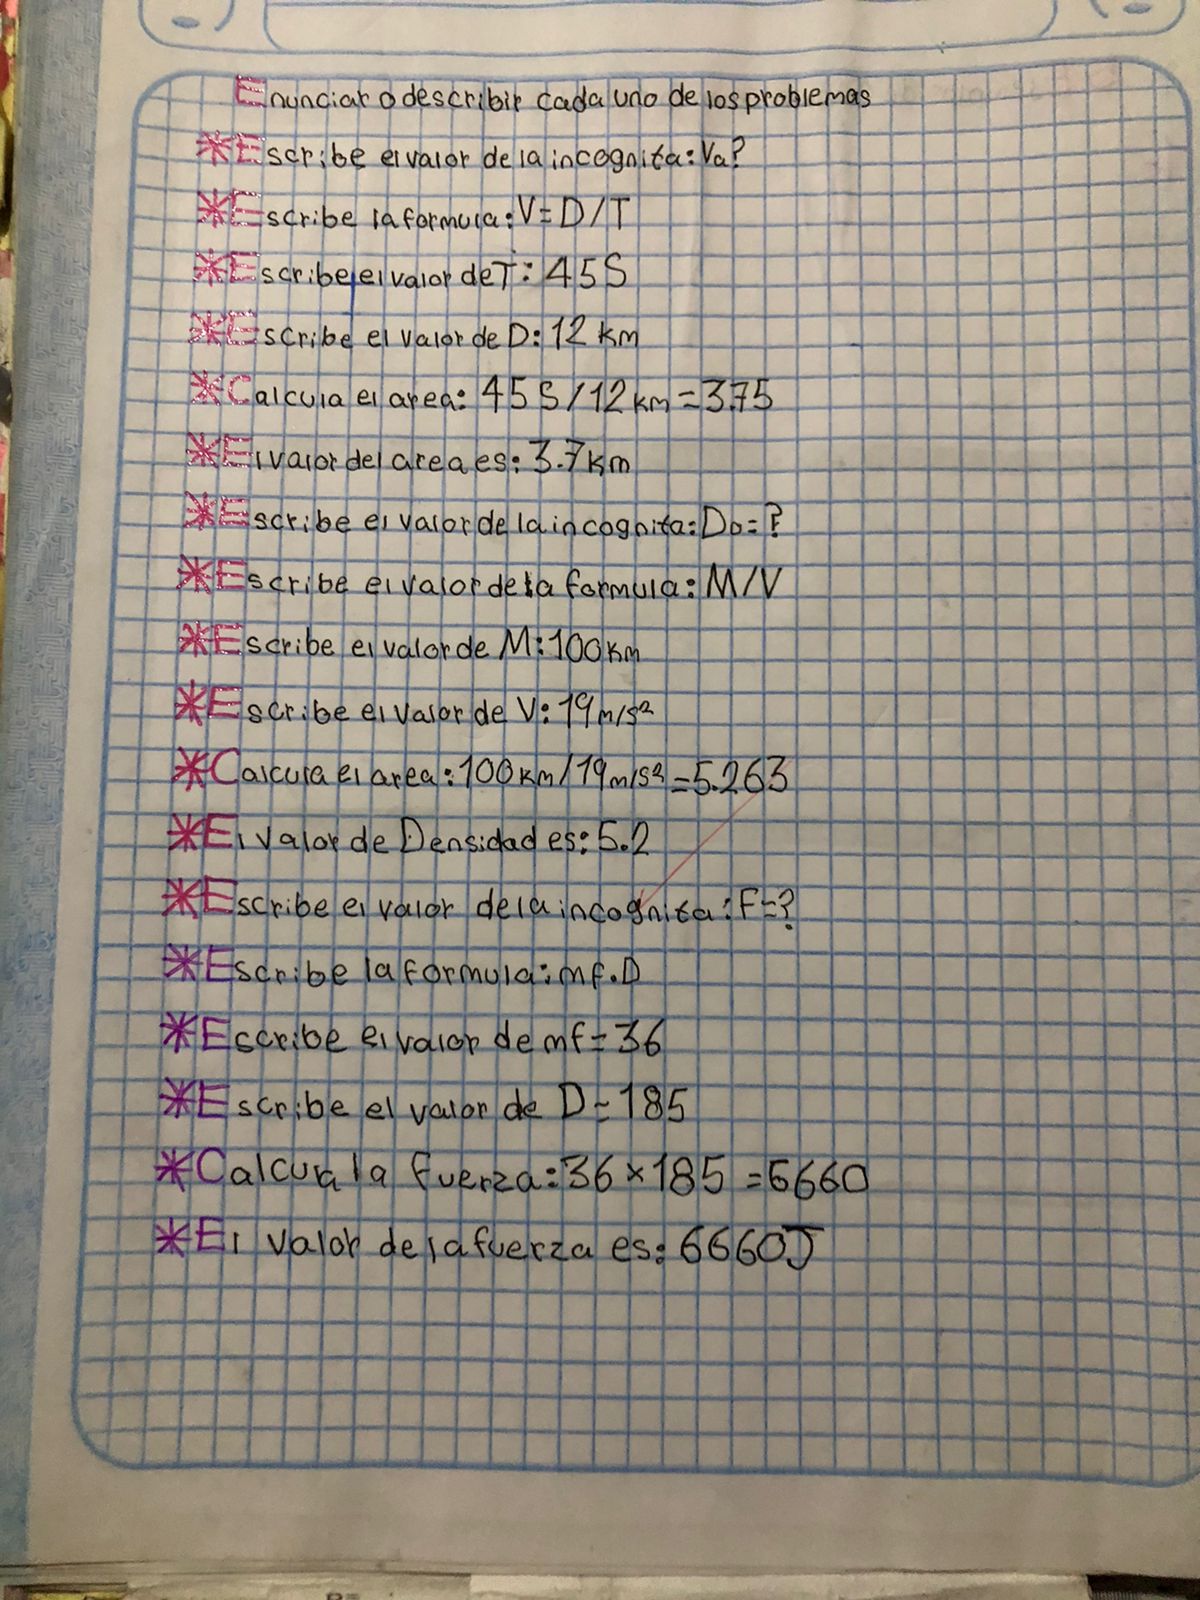 Enunciar o describir cada uno de los problemas
*Escribe el valor de la incognita: Va?
*Escribe la formula: V=D/T
*Escribe el valor de T: 45S
*Escribe el valor de D: 12 km
*Calcula el area: 45 S/12 km=3.75
*El valor del area es: 3.7km
*Escribe el valor de la incognita: Do=?
*Escribe el valor de la formula: M/V
*Escribe el valor de M: 100km
*Escribe el valor de V: 19m/s²
*Calcula el area: 100km/19m/s²=5.263
*El valor de Densidad es: 5.2
*Escribe el valor de la incognita: F=?
*Escribe la formula: mf.D
*Escribe el valor de mf=36
*Escribe el valor de D=185
*Calcula la fuerza: 36×185=6660
*El valor de la fuerza es: 6660J